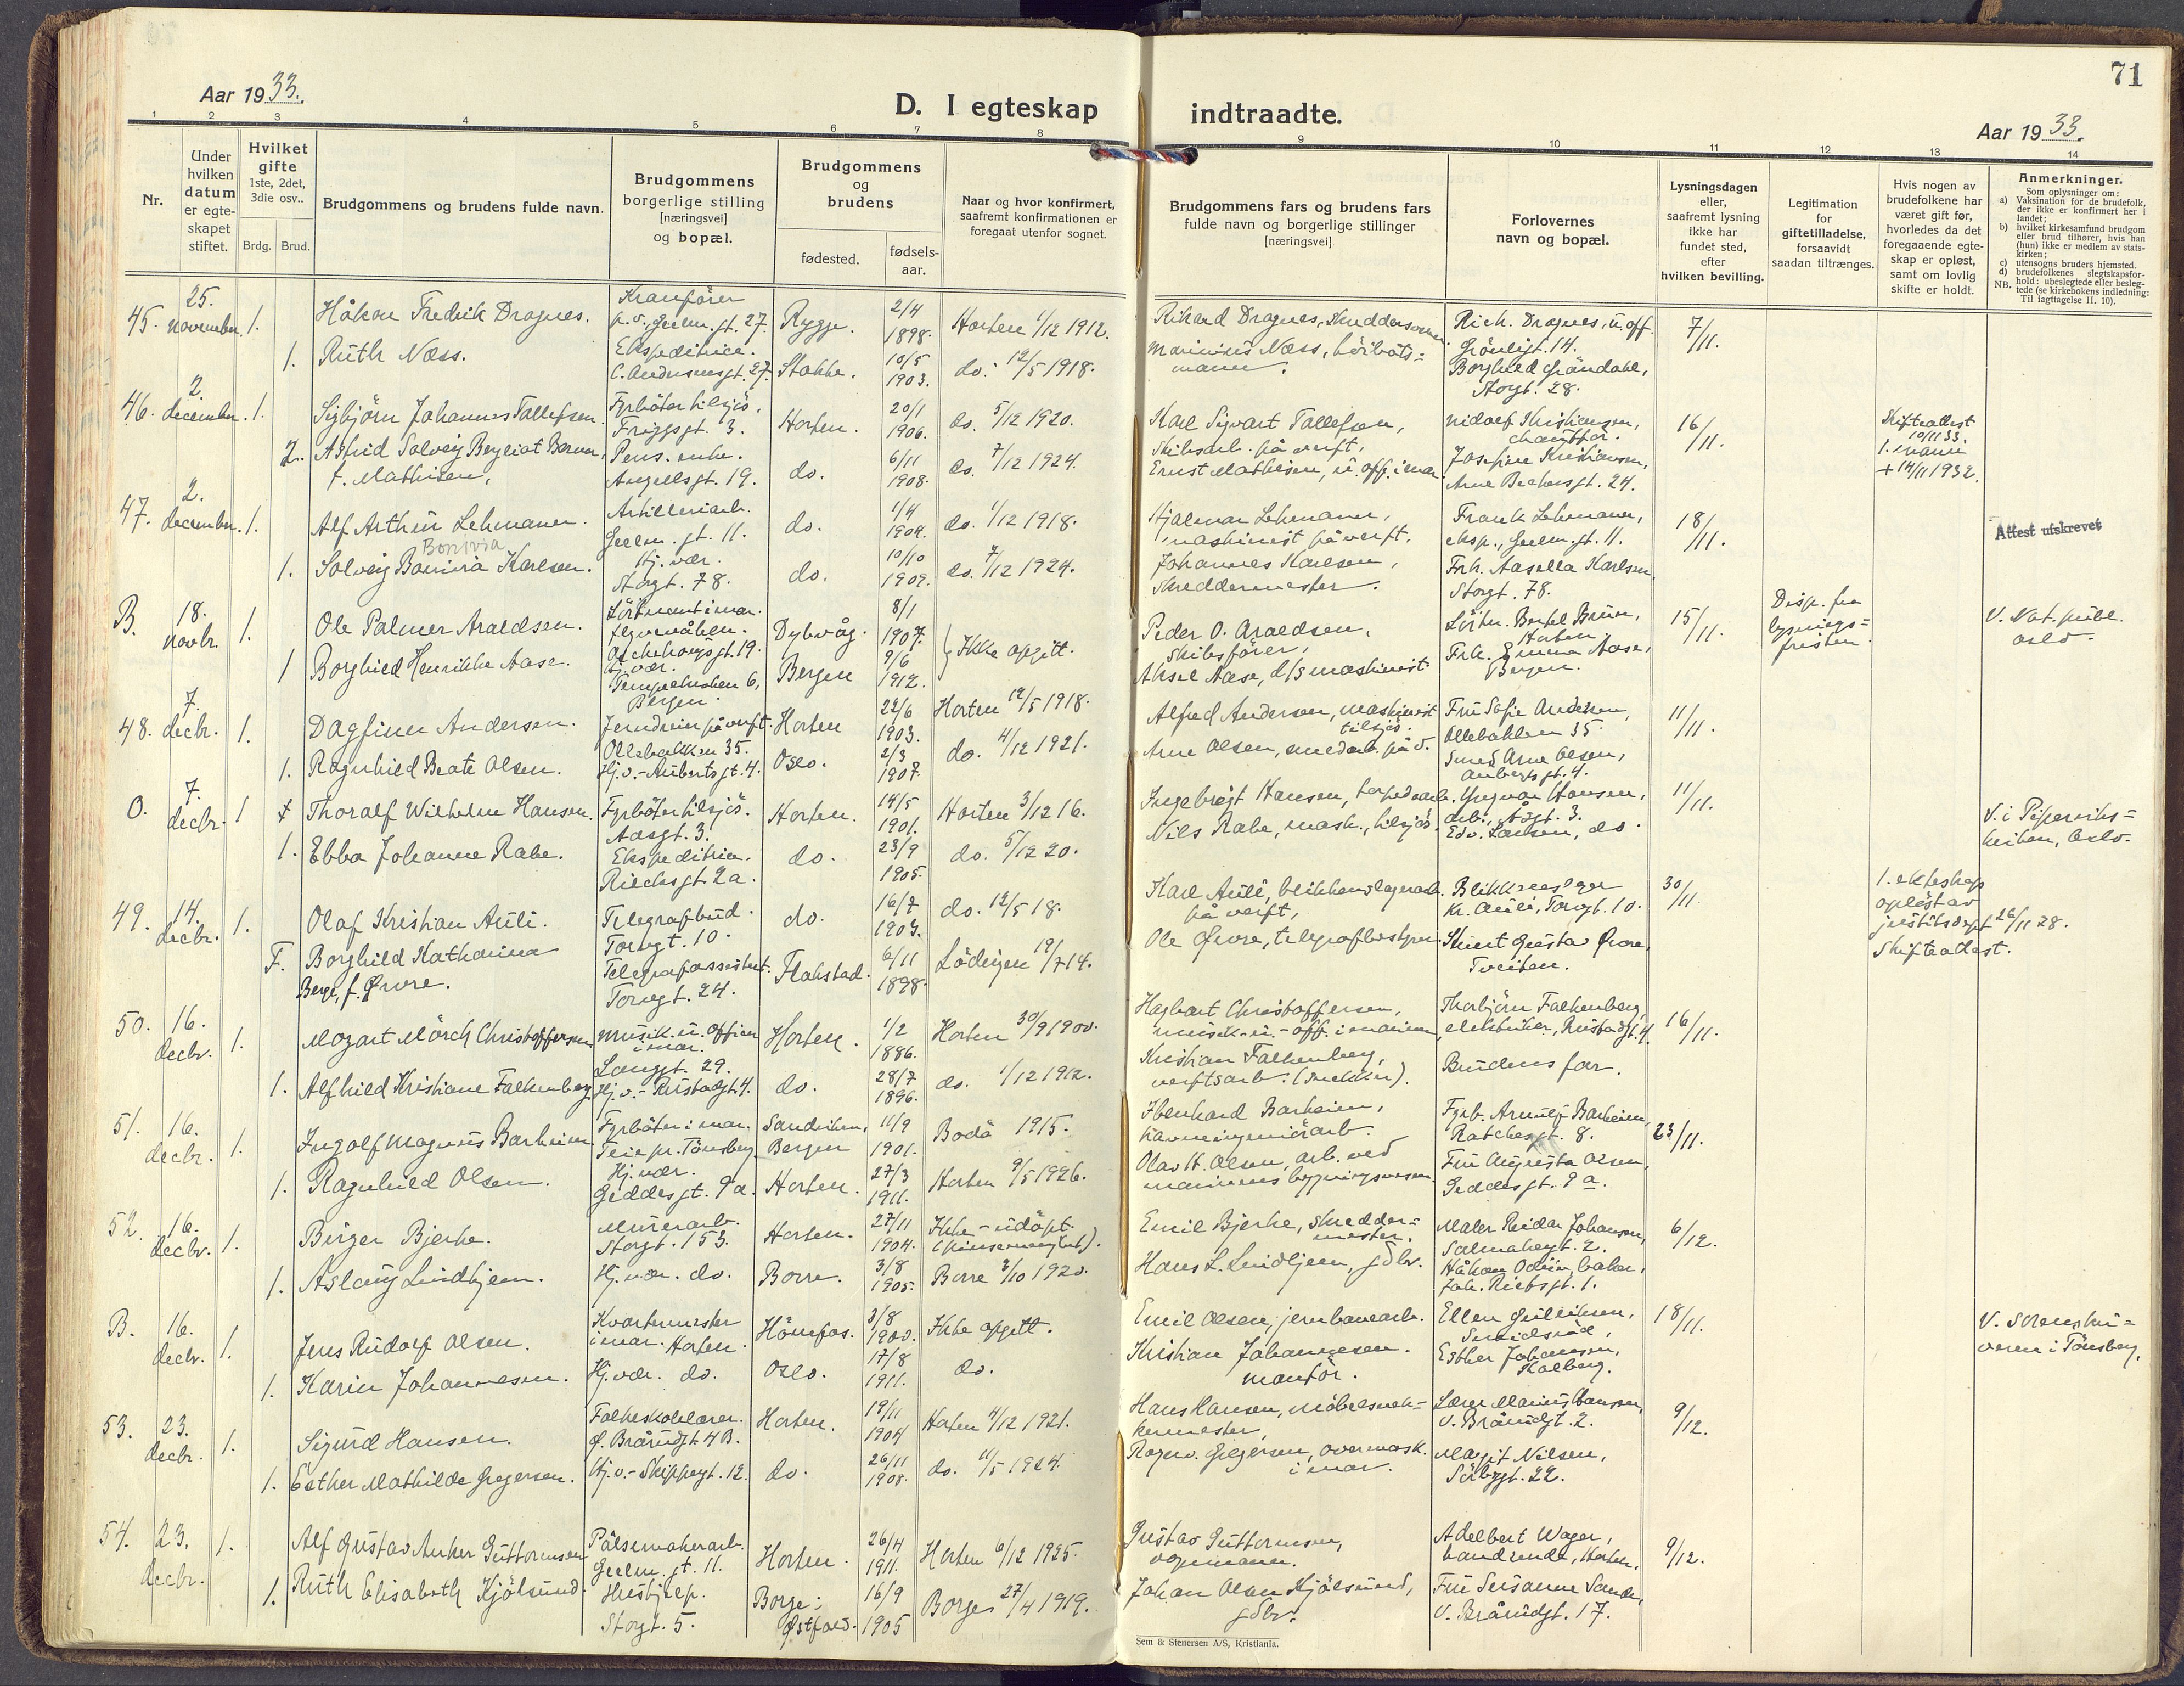 71
Aar 1933.
D. I egteskap indtraadte.
Aar 1933.
1 2 3 4 5 6 7 8 9 10 11 12 13 14
Nr.
Under hvilken datum er egte-skapet stiftet.
Hvilket gifte 1ste, 2det, 3die osv..
Brdg. Brud.
Brudgommens og brudens fulde navn.
Brudgommens borgerlige stilling [næringsvei] og bopæl.
Brudgommens og brudens
fødested.
fødsels-aar.
Naar og hvor konfirmert, saafremt konfirmationen er foregaat utenfor sognet.
Brudgommens fars og brudens fars fulde navn og borgerlige stillinger [næringsvei]
Forlovernes navn og bopæl.
Lysningsdagen eller, saafremt lysning ikke har fundet sted, efter hvilken bevilling.
Legitimation for giftetilladelse, forsaavidt saadan tiltrænges.
Hvis nogen av brudefolkene har været gift før, hvorledes da det foregaaende egte-skap er opløst, samt om lovlig skifte er holdt.
Anmerkninger.
Som oplysninger om:
a) Vaksination for de brudefolk, der ikke er konfirmert her i landet;
b) hvilket kirkesamfund brudgom eller brud tilhører, hvis han (hun) ikke er medlem av stats-kirken;
c) utensogns bruders hjemsted.
d) brudefolkenes slegtskapsfor-hold: ubeslegtede eller besleg-tede (se kirkebokens indledning:
NB. Til iagttagelse II, 10).
45. 25. november. 1. Håkon Fredrik Dragnes. Kranfører p.v., Geelm.gt. 27. Rygge. 2/4 1898. Horten 1/12 1912. Rikard Dragnes, Rich. Dragnes, u.off. Grönligt. 14. 7/11.
1. Ruth Næss. Ekspeditrice. C. Andersensgt. 27. Stokke. 10/5 1903. do. 12/5 1918. Marinius Næss, Borghild Gröndahl, Storgt. 28.
46. 2. december. 1. Sigbjörn Johannes Tallefsen. Fyrböter tilsjös. Friggsgt. 3. Horten. 20/1 1906. do. 5/12 1920. Karl Sigvart Tallefsen, skibsarb. på verft, Kristiansen, chauffør. 16/11. Skifteattest 10/11 33.
2. Astrid Solveig Bergliot f. Mathisen, Pens. enke. Angellsgt. 19. do. 6/11 1908. do. 7/12 1924. Ernst Mathisen, u.off. i mar. Josefine Kristiansen, Arne Bechersgt. 24. 1. mann + 14/11 1932.
47. 2. december. 1. Alf Arthur Lehmann. Artilleriarb. Geelm.gt. 11. do. 1/4 1904. do. 1/12 1918. Hjalmar Lehmann, maskinist på verft. Frank Lehmann, eksp., Geelm.gt. 11. 18/11. Attest utskrevet
Bonivia
1. Solveig Karlsen. Hj. vær. Storgt. 78. do. 10/10 1909. do. 7/12 1924. Johannes Karlsen, skreddermester. Frk. Aasella Karlsen, Storgt. 78.
B. 18. novbr. 1. Ole Palmer Araldsen. Löitnant i mar. flyvevåben. Aschehougsgt. 19. Dybvåg. 8/1 1907. Ikke opgitt. Peder O. Araldsen, skibsförer, Löitn. Bertel Bruun, Horten 15/11. Disp. fra lysnings=fristen. V. Not. publ. Oslo.
1 Borghild Henrikke Aase. Hj. vær. 6, Bergen. Bergen 9/6 1912. Aksel Aase, d/s maskinist. Frk. Emma Aase, Bergen.
48. 7. decbr. 1. Dagfinn Andersen. Jerndreier på verft. Ollebakken 35. Horten 22/6 1903. Horten 12/5 1918. Alfred Andersen, maskinist tilsjös. Fru Sofie Andersen, Ollebakken 35. 11/11.
1. Ragnhild Beate Olsen. Hj.v.-Aubertsgt. 4. Oslo. 2/3 1907. do. 4/12 1921. Arne Olsen, smedarb. på v. Smed Arne Olsen, Aubertsgt. 4.
O. 7. decbr. 1 Thoralf Wilhelm Hansen. Fyrböter tilsjös. Aasgt. 3. Horten. 14/5 1901. Horten 3/12 16. Ingebrigt Hansen, torpedoarb. Yngvar Hansen, arb., Aasgt. 3. 11/11. V. i Pipervik=kirken, Oslo.
1. Ebba Johanne Rabe. Ekspeditrice. 2a. do. 23/9 1905. do. 5/12 20. Nils Rabe, mask., tilsjös. Edv. Larsen, do.
49. 14. decbr. 1. Olaf Kristian Auli. Telegrafbud. Torvgt. 10. do. 16/7 1903. do. 12/5 18. Karl Auli, blikkenslagerarb. på verft, Blikkenslager Kr. Auli, Torvgt. 10. 30/11. 1. ekteskap oplöst av justitsdept 26/11 28. Skifteattest.
F. Borghild Katharina Berge, f. Øvre. Telegrafassistent. Torvgt. 24. Flakstad. 6/11 1898. Lödingen 19/7 14. Ole Øvre, telegrafbestyrer. Knut Gustav Øvre, Tveiten.
50. 16. decbr. 1. Mozart Mörch Christoffersen. Musik-u. officer i mar. Langgt. 29. Horten. 1/2 1886. Horten 30/9 1900. Hagbart Christoffersen, musik-u.-off. i marinen, Thorbjörn Falkenberg, elektriker, Rustadgt. 4. 16/11.
1. Alfhild Kristiane Falkenberg. Hj.v.- Rustadgt. 4. do. 28/7 1896. do. 1/12 1912. Kristian Falkenberg, verftsarb. (snekker). Brudens far.
51. 16. decbr. 1. Ingolf Magnus Barheim. Fyrböter i mar. Teie pr. Tönsberg. Sandviken, Bergen 11/9 1901. Bodö 1915. Barheim, havneingeniörarb. Fyrb. Arnulf Barheim, Ratchesgt. 8. 23/11.
1. Ragnhild Olsen. Hj. vær. Geddesgt. 9a. Horten. 27/3 1911. Horten 9/5 1926. Olav H. Olsen, arb. ved marinens bygningsvesen. Fru Augusta Olsen, Geddesgt. 9a.
52. 16. decbr. 1. Birger Bjerke. Murerarb. Storgt. 153. Horten. 27/11 1904. Ikke - udöpt Emil Bjerke, skredder=mester. Maler Reidar Johansen, 2. 6/12.
1. Aslaug Lindhjem. Hj. vær. do. Borre. 3/8 1905. Borre 3/10 1920. Hans L. Lindhjem, gdbr. Håkon Odium, baker, 1.
B. 16. decbr. 1. Jens Rudolf Olsen. Kvartermester i mar. Horten. Hönefos. 3/8 1900. Ikke opgitt. Emil Olsen, jernbanearb. Ellen Gulliksen, 18/11. V. Sorenskri=veren i Tönsberg.
1. Karin Johannesen. Hj. vær. do. Oslo. 17/8 1911. do. Kristian Johannesen. montör. Esther Johansen, Kolberg.
53. 23. decbr. 1. Sigurd Hansen. Folkeskolelærer. Ø. Braarudgt. 4B. Horten. 19/11 1904 Horten 4/12 1921. Hans Hansen, möbelsnek=kermester, Lærer Marius Hansen, V. Braarudgt. 2. 9/12.
1. Esther Mathilde Gregersen. Hj.v.- Skippergt. 12. do. 26/11 1908. do. 11/5 1924. Ragnv. Gregersen, overmask. i mar. Margit Nilsen, 22.
54. 23. decbr. 1. Alf Gustav Anker Guttormsen Pölsemakerarb. Geelm.gt. 11. Horten. 26/4 1911. Horten 6/12 1925. Gustav Guttormsen, vognmann. Adelbert Wager, handlende, Horten. 9/12.
1. Ruth Elisabeth Kjölsund. Hushjelp. Storgt. 5. Borge i Østfold. 16/9 1905 Borge 27/4 1919. Johan Olsen Kjölsund, gdbr. Fru Susanne Sande, V. Braarudgt. 17.
Sem & Stenersen A/S, Kristiania.